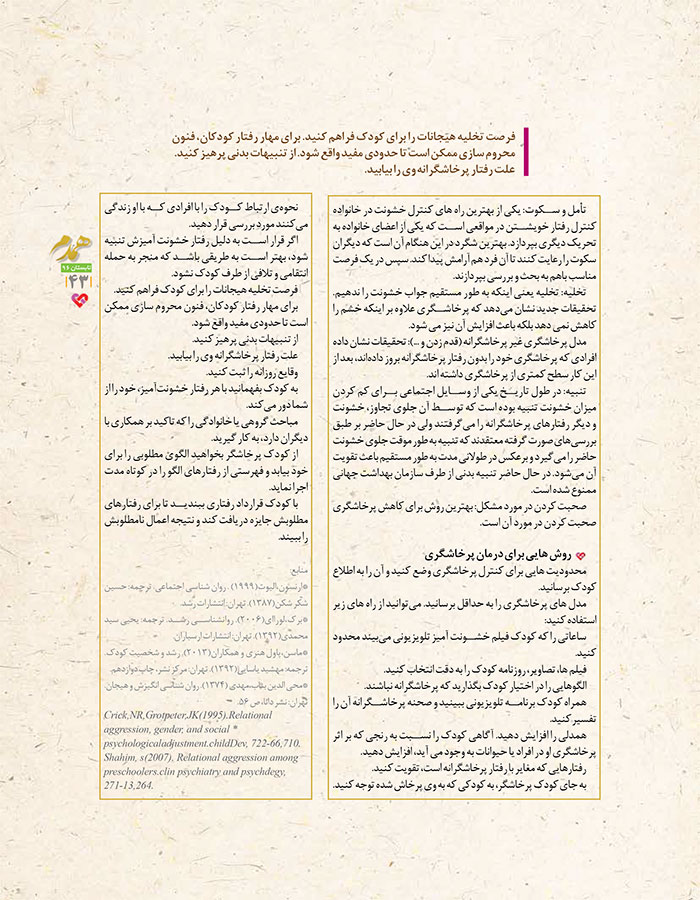 فرصت تخلیه هیجانات را برای کودک فراهم کنید. برای مهار رفتار کودکان، فنون
محروم سازی ممکن است تا حدودی مفید واقع شود. از تنبیهات بدنی پرهیز کنید.
علت رفتار پرخاشگرانه وی را بیابید.
تأمل و سکوت: یکی از بهترین راه های کنترل خشونت در خانواده
کنترل رفتار خویشتن در مواقعی است که یکی از اعضای خانواده به
تحریک دیگری بپردازد. بهترین شگرد در این هنگام آن است که دیگران
سکوت را رعایت کنند تا آن فرد هم آرامش پیدا کند. سپس در یک فرصت
مناسب باهم به بحث و بررسی بپردازند.
تخلیه: تخلیه یعنی اینکه به طور مستقیم جواب خشونت را ندهیم.
تحقیقات جدید نشان می‌دهد که پرخاشگری علاوه بر اینکه خشم را
کاهش نمی دهد بلکه باعث افزایش آن نیز می شود.
مدل پرخاشگری غیر پرخاشگرانه (قدم زدن و ...): تحقیقات نشان داده
افرادی که پرخاشگری خود را بدون رفتار پرخاشگرانه بروز داده‌اند، بعد از
این کار سطح کمتری از پرخاشگری داشته اند.
تنبیه: در طول تاریخ یکی از وسایل اجتماعی برای کم کردن
میزان خشونت تنبیه بوده است که توسط آن جلوی تجاوز، خشونت
و دیگر رفتارهای پرخاشگرانه را می‌گرفتند ولی در حال حاضر بر طبق
بررسی‌های صورت گرفته معتقدند که تنبیه به طور موقت جلوی خشونت
حاضر را می‌گیرد و برعکس در طولانی مدت به طور مستقیم باعث تقویت
آن می‌شود. در حال حاضر تنبیه بدنی از طرف سازمان بهداشت جهانی
ممنوع شده است.
صحبت کردن در مورد مشکل: بهترین روش برای کاهش پرخاشگری
صحبت کردن در مورد آن است.
روش هایی برای درمان پرخاشگری
محدودیت هایی برای کنترل پرخاشگری وضع کنید و آن را به اطلاع
کودک برسانید.
مدل های پرخاشگری را به حداقل برسانید. می‌توانید از راه های زیر
استفاده کنید:
ساعاتی را که کودک فیلم خشونت آمیز تلویزیونی می‌بیند محدود
کنید.
فیلم ها، تصاویر، روزنامه کودک را به دقت انتخاب کنید.
الگوهایی را در اختیار کودک بگذارید که پرخاشگرانه نباشند.
همراه کودک برنامه تلویزیونی ببینید و صحنه پرخاشگرانه آن را
تفسیر کنید.
همدلی را افزایش دهید. آگاهی کودک را نسبت به رنجی که بر اثر
پرخاشگری او در افراد یا حیوانات به وجود می آید، افزایش دهید.
رفتارهایی که مغایر با رفتار پرخاشگرانه است، تقویت کنید.
به جای کودک پرخاشگر، به کودکی که به وی پرخاش شده توجه کنید.
نحوه‌ی ارتباط کودک را با افرادی که با او زندگی
می‌کنند مورد بررسی قرار دهید.
اگر قرار است به دلیل رفتار خشونت آمیزش تنبیه
شود، بهتر است به طریقی باشد که منجر به حمله
انتقامی و تلافی از طرف کودک نشود.
فرصت تخلیه هیجانات را برای کودک فراهم کنید.
برای مهار رفتار کودکان، فنون محروم سازی ممکن
است تا حدودی مفید واقع شود.
از تنبیهات بدنی پرهیز کنید.
علت رفتار پرخاشگرانه وی را بیابید.
وقایع روزانه را ثبت کنید.
به کودک بفهمانید با هر رفتار خشونت‌آمیز، خود را از
شما دور می‌کند.
مباحث گروهی یا خانوادگی را که تاکید بر همکاری با
دیگران دارد، به کار گیرید.
از کودک پرخاشگر بخواهید الگوی مطلوبی را برای
خود بیابد و فهرستی از رفتارهای الگو را در کوتاه مدت
اجرا نماید.
با کودک قرارداد رفتاری ببندید تا برای رفتارهای
مطلوبش جایزه دریافت کند و نتیجه اعمال نامطلوبش
را ببیند.
منابع:
*ارنسون، الیوت (۱۹۹۹). روان شناسی اجتماعی. ترجمه: حسین
شکر شکن (۱۳۸۷). تهران: انتشارات رشد.
*برک، لورا ای (۲۰۰۶). روانشناسی رشد. ترجمه: یحیی سید
محمدی (۱۳۹۲). تهران: انتشارات ارسباران.
*ماسن، پاول هنری و همکاران (۲۰۱۳). رشد و شخصیت کودک.
ترجمه: مهشید یاسایی (۱۳۹۲). تهران: مرکز نشر، چاپ دوازدهم.
*محی الدین بناب، مهدی (۱۳۷۴). روان شناسی انگیزش و هیجان.
تهران: نشر دانا، ص ۵۶.
Criek,NR,Grotpeter,JK(1995).Relational
aggression, gender, and social *
psychologicaladjustment.childDev, 722-66,710.
Shahjm, s(2007), Relational aggression among
preschoolers.clin psychiatry and psychdegy,
271-13,264.
همدم
تابستان ۹۶
۴۳